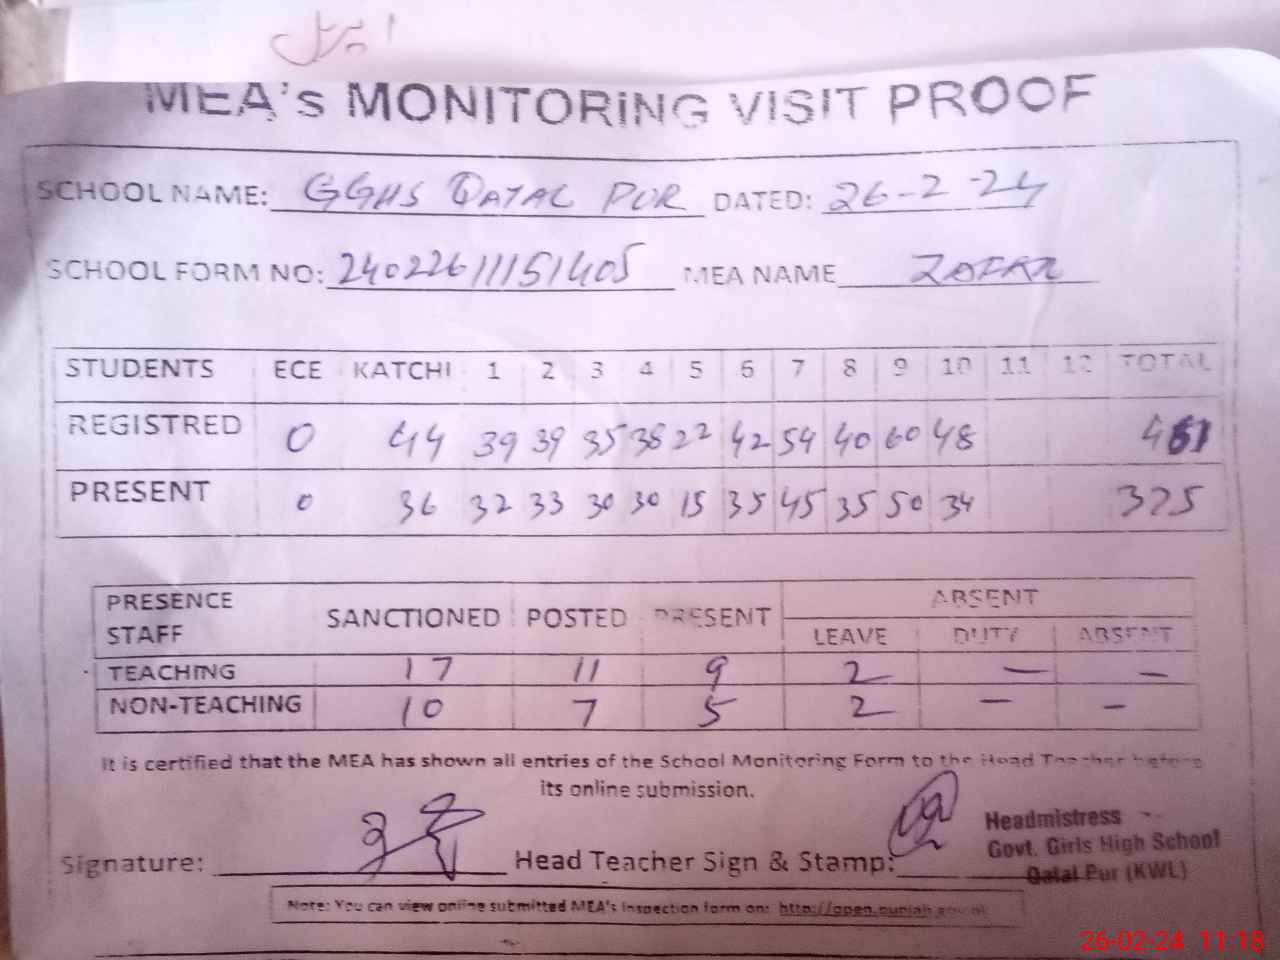 MEA's MONITORING VISIT PROOF
SCHOOL NAME: GGHS QATAL PUR DATED: 26-2-24
SCHOOL FORM NO: 24022611151405 MEA NAME ZAFAR
STUDENTS ECE KATCHI 1 2 3 4 5 6 7 8 9 10 11 12 TOTAL
REGISTRED 0 44 39 39 35 38 22 42 54 40 60 48 461
PRESENT 0 36 32 33 30 30 15 35 45 35 50 34 375
PRESENCE STAFF SANCTIONED POSTED PRESENT ABSENT
LEAVE DUTY ABSENT
TEACHING 17 11 9 2 — —
NON-TEACHING 10 7 5 2 — —
It is certified that the MEA has shown all entries of the School Monitoring Form to the Head Teacher before
its online submission.
Signature: Head Teacher Sign & Stamp:
Headmistress
Govt. Girls High School
Qatal Pur (KWL)
Note: You can view online submitted MEA's inspection form on: http://open.punjab.gov.pk
26-02-24 11:18